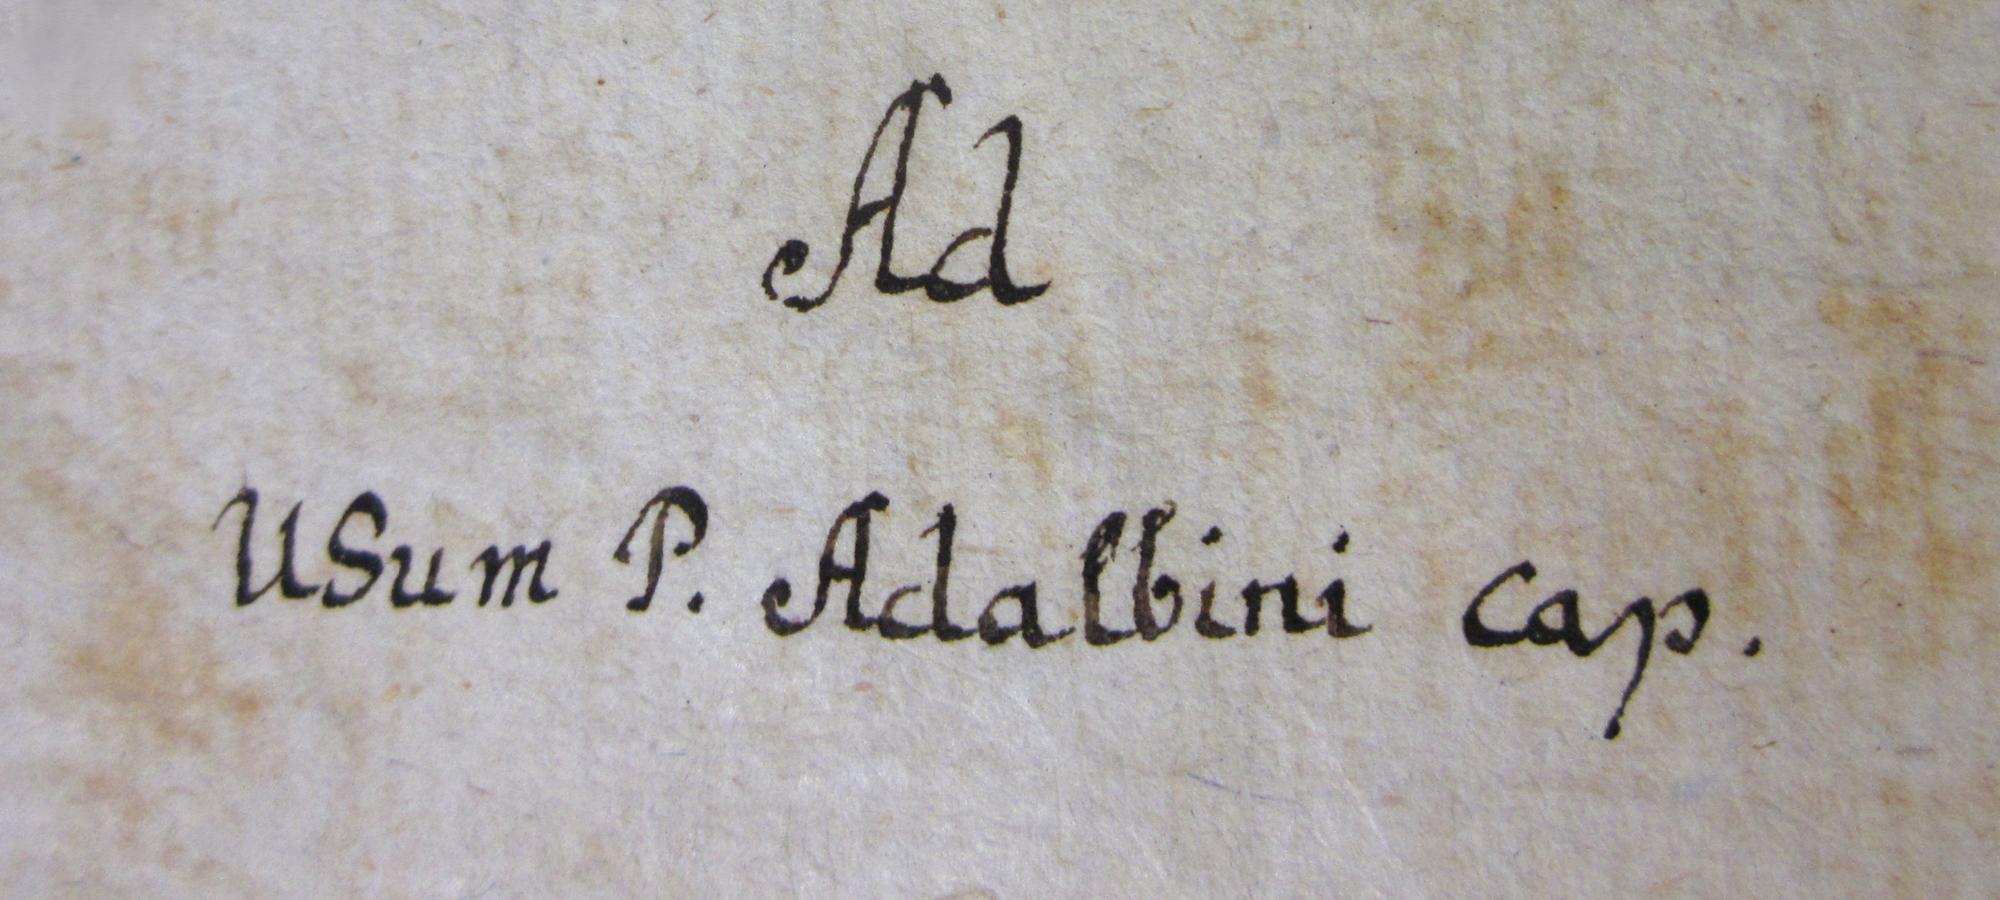 Ad
Usum P. Adalbini cap.